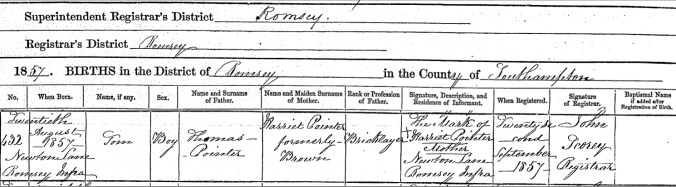 Superintendent Registrar's District Romsey.
Registrar's District Romsey
1857. BIRTHS in the District of Romsey in the County of Southampton
No. When Born. Name, if any. Sex. Name and Surname of Father. Name and Maiden Surname of Mother. Rank or Profession of Father. Signature, Description, and Residence of Informant. When Registered. Signature of Registrar. Baptismal Name if added after Registration of Birth.
432
Twentieth
August
1857
Newton Lane
Romsey Infra
Tom
Boy
Thomas
Pointer
Harriet Pointer
formerly
Brown
Bricklayer
The Mark of
X Harriet Pointer
Mother
Newton Lane
Romsey Infra
Twenty se-
cond
September
1857
John
Scorey
Registrar